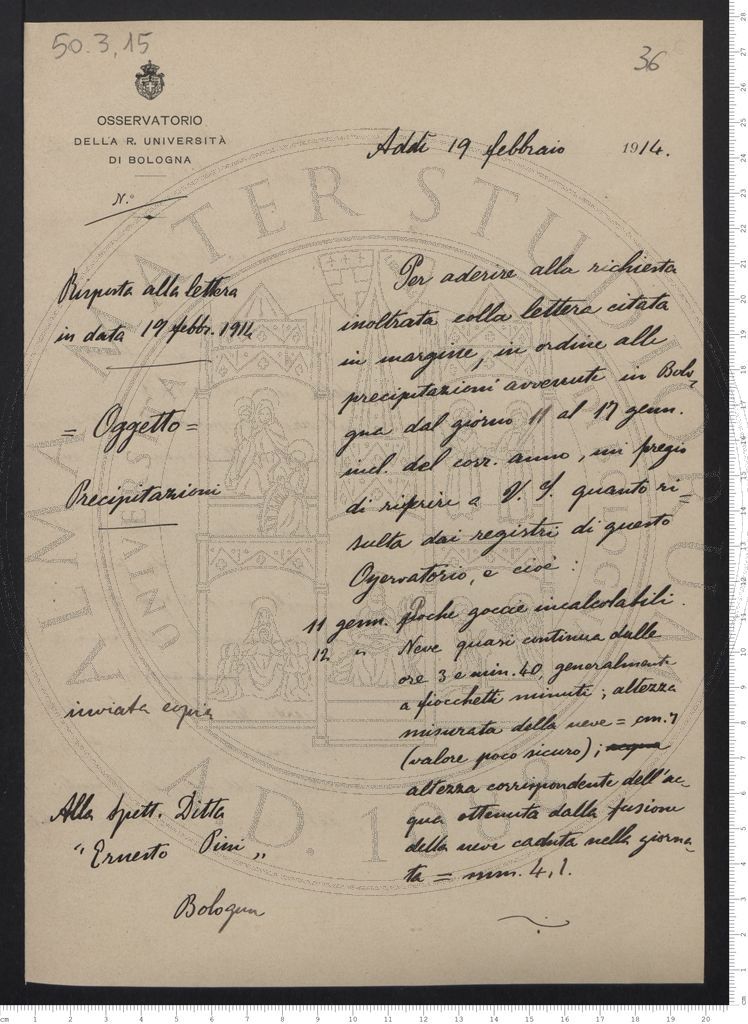 50.3,15
36
OSSERVATORIO
DELLA R. UNIVERSITÀ
DI BOLOGNA
N.º
Addì 19 febbraio 1914.
Risposta alla lettera
in data 17 febbr. 1914
= Oggetto =
Precipitazioni
inviata copia
Alla Spett. Ditta
"Ernesto Pini"
Bologna
Per aderire alla richiesta
inoltrata colla lettera citata
in margine, in ordine alle
precipitazioni avvenute in Bolo-
gna dal giorno 11 al 17 genn.
incl. del corr. anno, mi pregio
di riferire a V. S. quanto ri=
sulta dai registri di questo
Osservatorio, e cioè:
11 genn. Poche goccie incalcolabili.
12 " Neve quasi continua dalle
ore 3 e min. 40, generalmente
a fiocchetti minuti; altezza
misurata della neve = cm. 7
(valore poco sicuro); acqua
altezza corrispondente dell'ac-
qua ottenuta dalla fusione
della neve caduta nella giorna-
ta = mm. 4,1.
ALMA MATER STUDIORUM
A.D. 1088